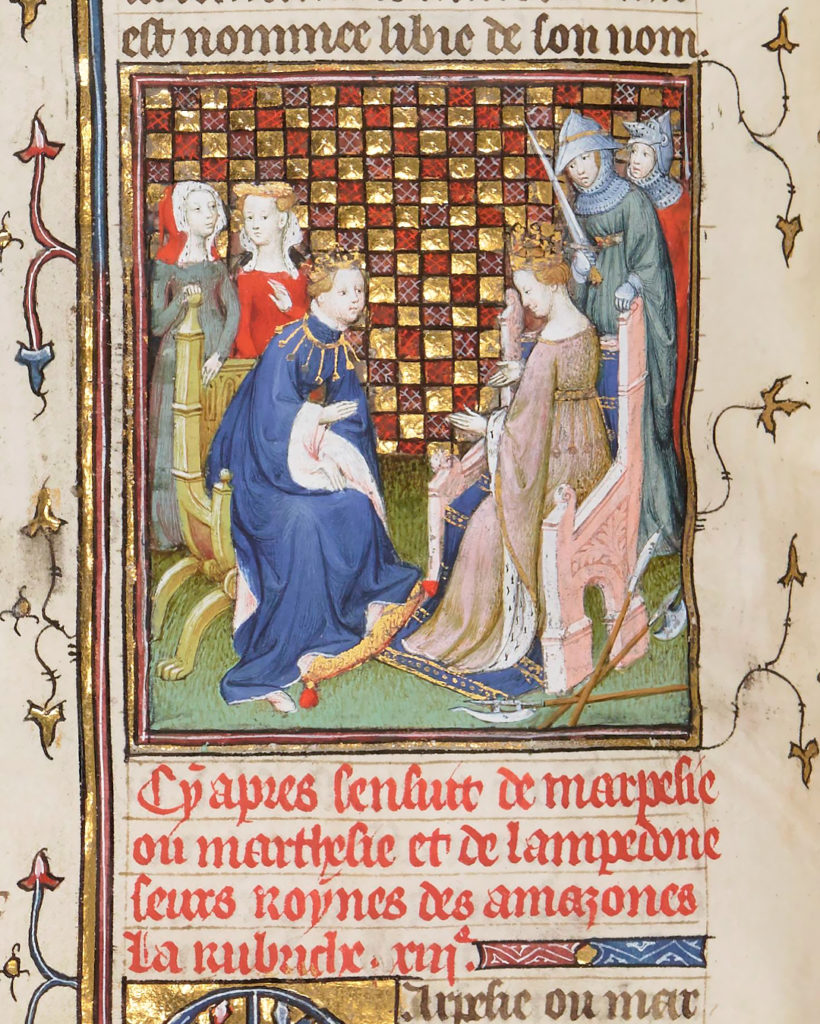 est nommee libie de son nom.
Cy apres sensuit de marpesie
ou marthesie et de lampedone
seurs roynes des amazones
La rubriche. xiii͛.
Arpesie ou mar